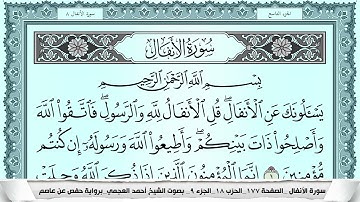 الجزء التاسع
سورة الأنفال ٨
سُورَةُ الْأَنْفَالِ
بِسْمِ اللَّهِ الرَّحْمَٰنِ الرَّحِيمِ
يَسْـَٔلُونَكَ عَنِ الْأَنْفَالِ قُلِ الْأَنْفَالُ لِلَّهِ وَالرَّسُولِ فَاتَّقُوا اللَّهَ
وَأَصْلِحُوا ذَاتَ بَيْنِكُمْ وَأَطِيعُوا اللَّهَ وَرَسُولَهُ إِن كُنتُم
مُّؤْمِنِينَ ١ إِنَّمَا الْمُؤْمِنُونَ الَّذِينَ إِذَا ذُكِرَ اللَّهُ وَجِلَتْ
سورة الأنفال _ الصفحة ١٧٧ _ الحزب ١٨ _ الجزء ٩ _ بصوت الشيخ أحمد العجمي _ برواية حفص عن عاصم